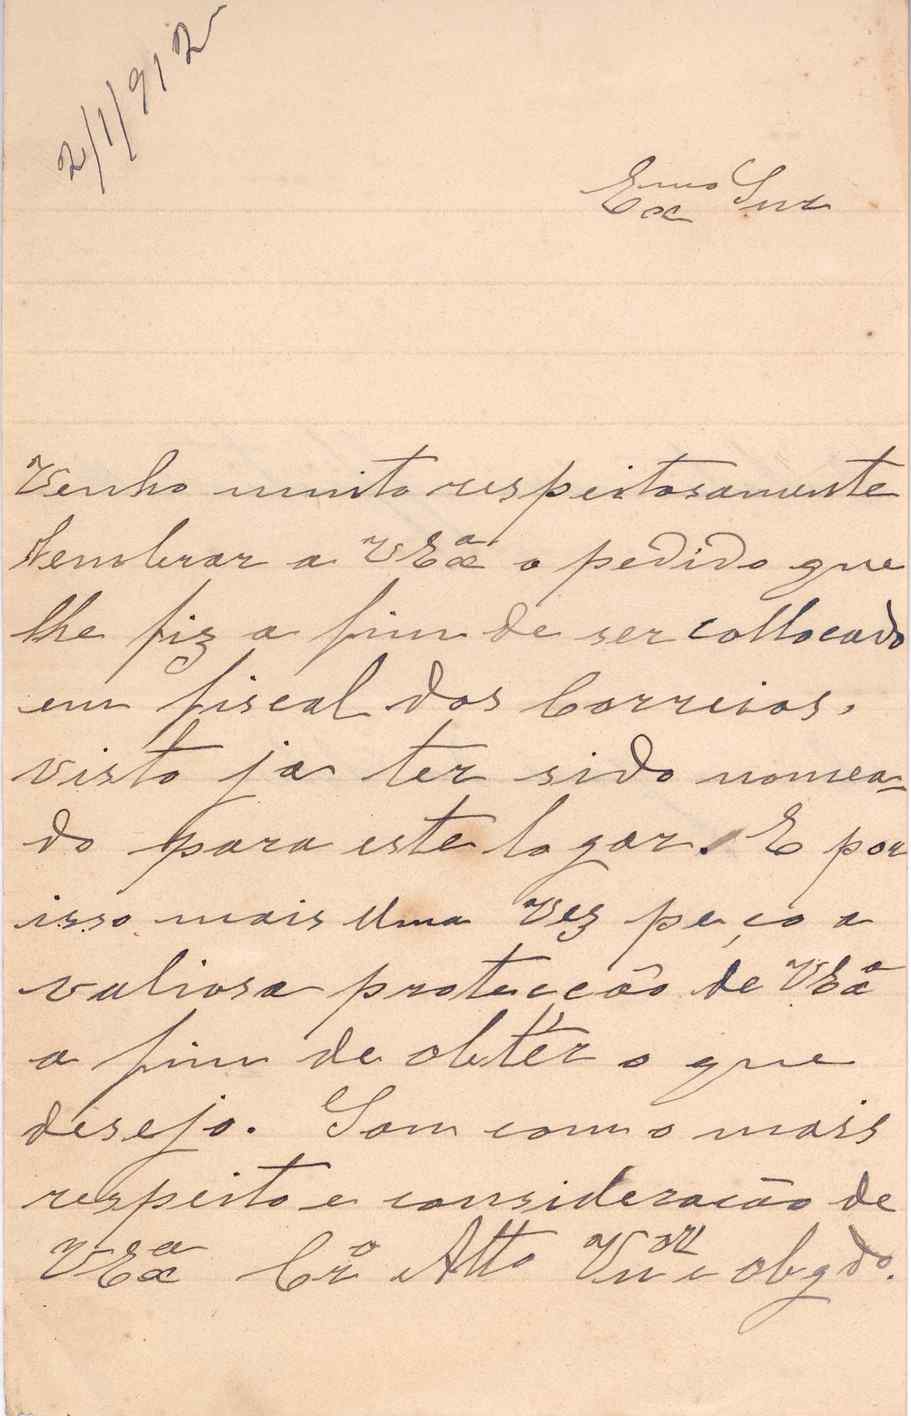 2/1/912
Exmo Snr
Venho muito respeitosamente
lembrar a VExa o pedido que
lhe fiz a fim de ser collocado
em fiscal dos Correios,
visto ja ter sido nomea-
do para este logar. E por
isso mais uma vez peço a
valiosa protecção de VExa
a fim de obtêr o que
desejo. Som com o mais
respeito e consideracão de
VExa Cro Atto Vnor e obgdo.